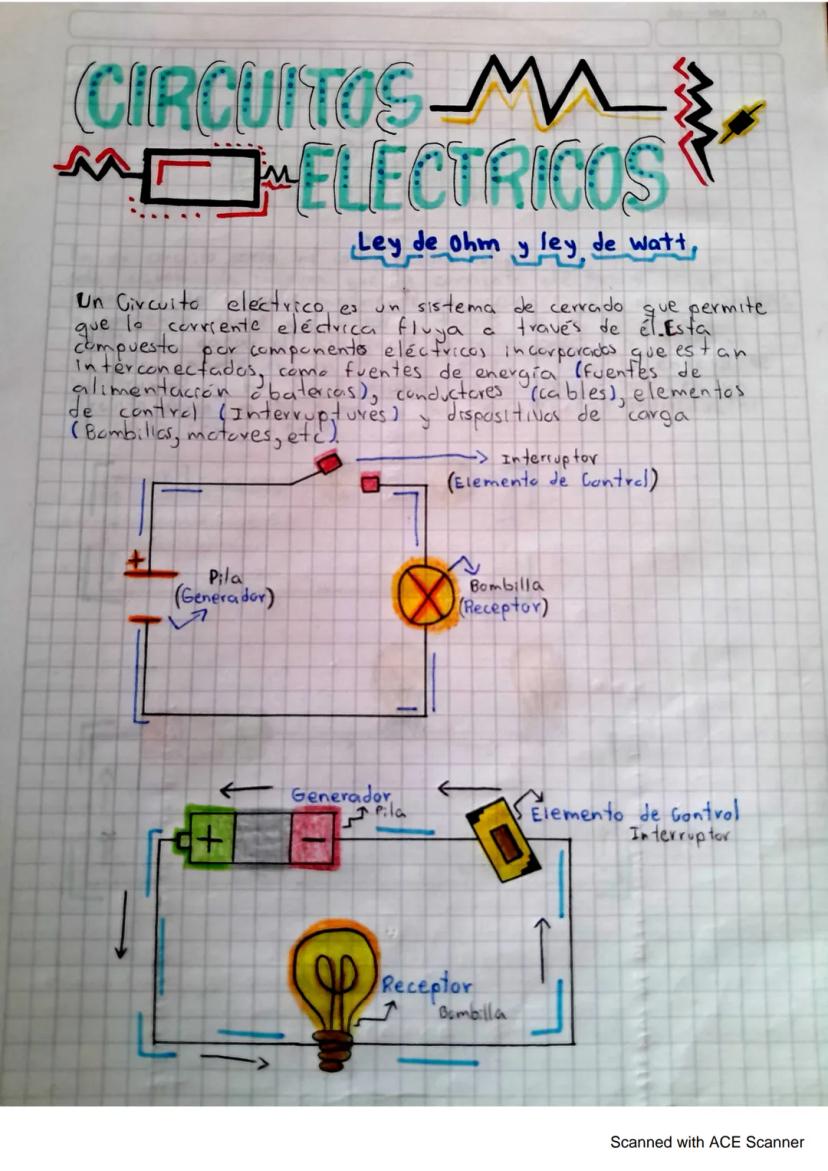 CIRCUITOS
ELECTRICOS
Ley de Ohm y ley de Watt.
Un Circuito eléctrico es un sistema de cerrado que permite
que la corriente eléctrica fluya a través de él.Esta
compuesto por componento eléctricos incorporados que estan
interconectados, como fuentes de energía (fuentes de
alimentación o baterias), conductores (cables), elementos
de control (Interruptures) y dispositivos de carga
(Bombillas, motores, etc).
Interruptor
(Elemento de Control)
+
Pila
(Generador)
Bombilla
(Receptor)
Generador
Pila
Elemento de Control
Interruptor
+
-
Receptor
Bombilla
Scanned with ACE Scanner